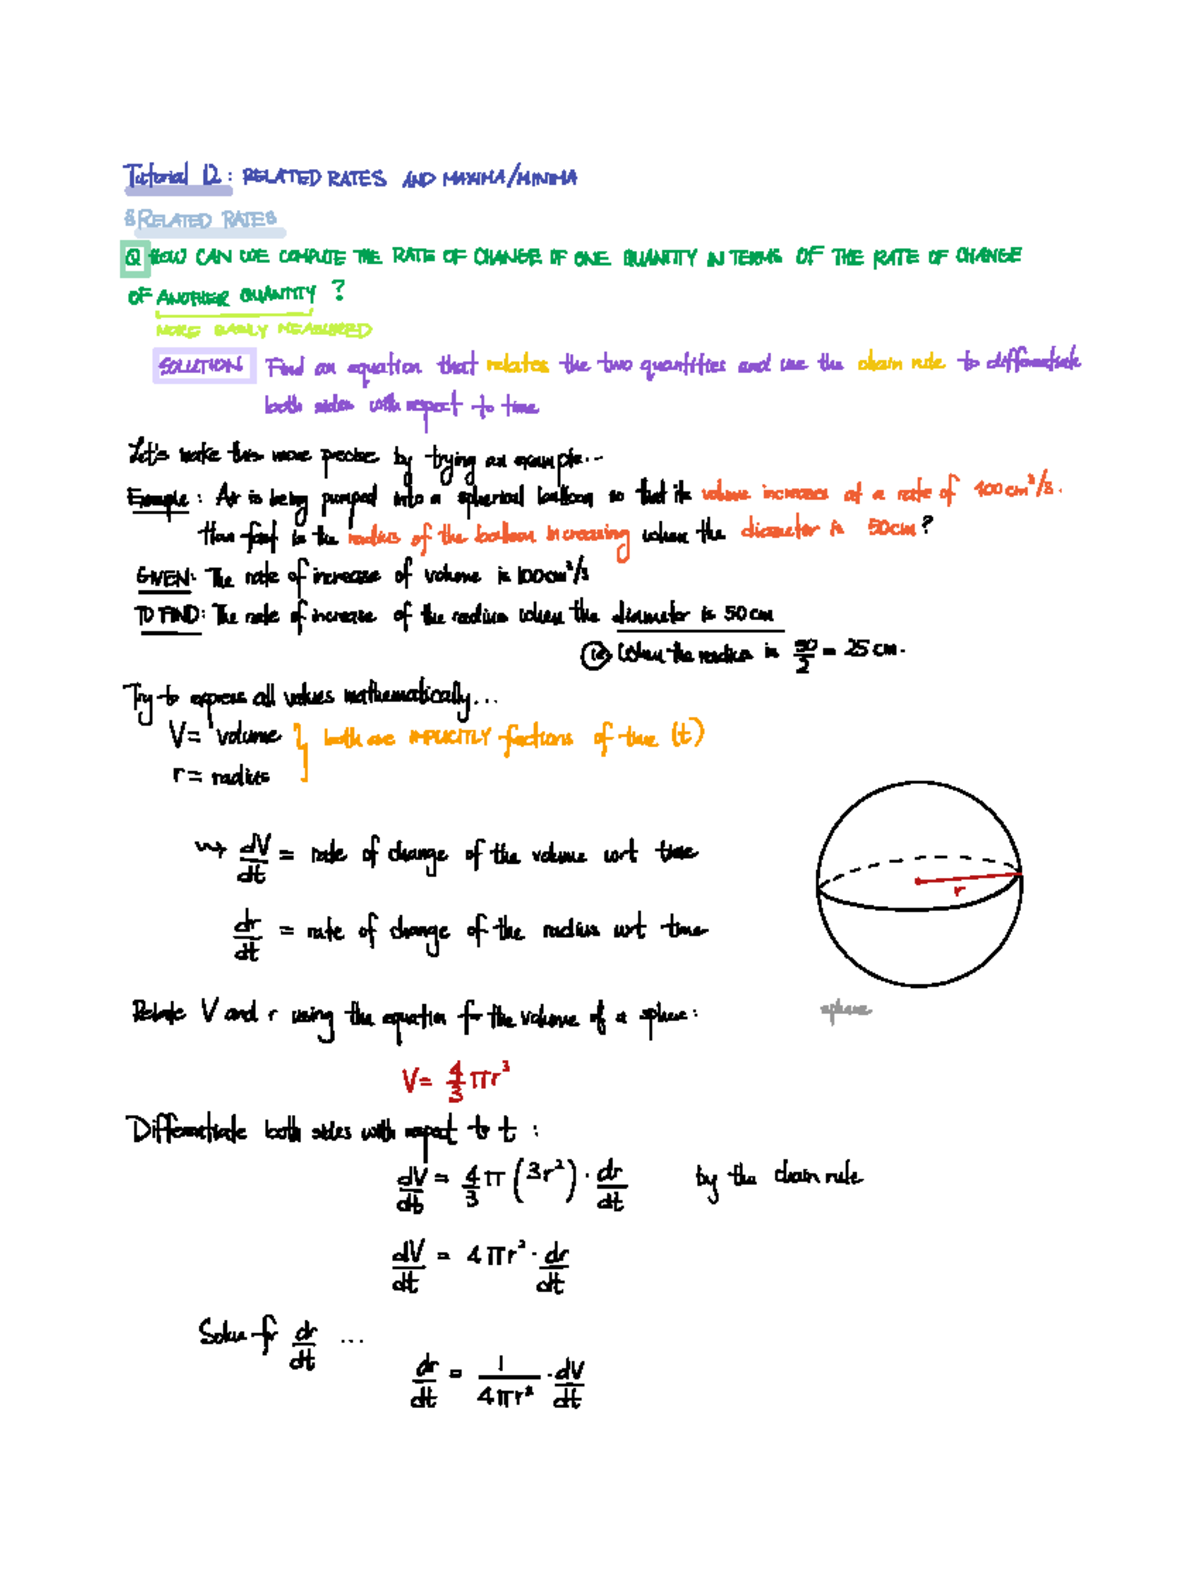 Tutorial 12: RELATED RATES AND MAXIMA/MINIMA
§ RELATED RATES
Q HOW CAN WE COMPUTE THE RATE OF CHANGE OF ONE QUANTITY IN TERMS OF THE RATE OF CHANGE
OF ANOTHER QUANTITY?
MORE EASILY MEASURED
SOLUTION Find an equation that relates the two quantities and use the chain rule to differentiate
both sides with respect to time
Let's make this more precise by trying an example...
Example: Air is being pumped into a spherical balloon so that its volume increases at a rate of 100cm³/s.
How fast is the radius of the balloon increasing when the diameter is 50cm?
GIVEN: The rate of increase of volume is 100cm³/s
TO FIND: The rate of increase of the radius when the diameter is 50cm
ie when the radius is 50/2 = 25cm.
Try to express all values mathematically...
V = volume } both are IMPLICITLY functions of time (t)
r = radius
⇝ dV/dt = rate of change of the volume wrt time
dr/dt = rate of change of the radius wrt time
r
Relate V and r using the equation for the volume of a sphere:
sphere
V = 4/3 πr³
Differentiate both sides with respect to t:
dV/dt = 4/3 π (3r²) · dr/dt by the chain rule
dV/dt = 4πr² · dr/dt
Solve for dr/dt ...
dr/dt = 1/4πr² · dV/dt